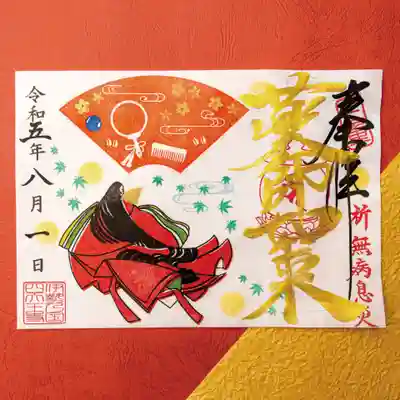 奉拝
祈無病息災
薬師如来
令和五年八月一日